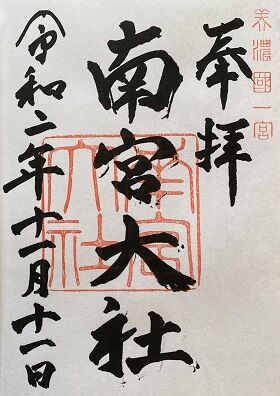 美濃國一宮
奉拝
南宮大社
南宮大社
令和二年十一月十一日